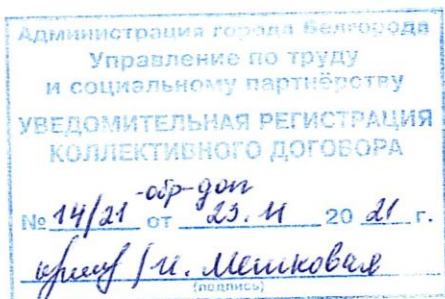 Администрация города Белгорода
Управление по труду
и социальному партнёрству
УВЕДОМИТЕЛЬНАЯ РЕГИСТРАЦИЯ
КОЛЛЕКТИВНОГО ДОГОВОРА
№ 14/21 -обр-доп от 23.11 20 21 г.
/И. Мешковая
(подпись)